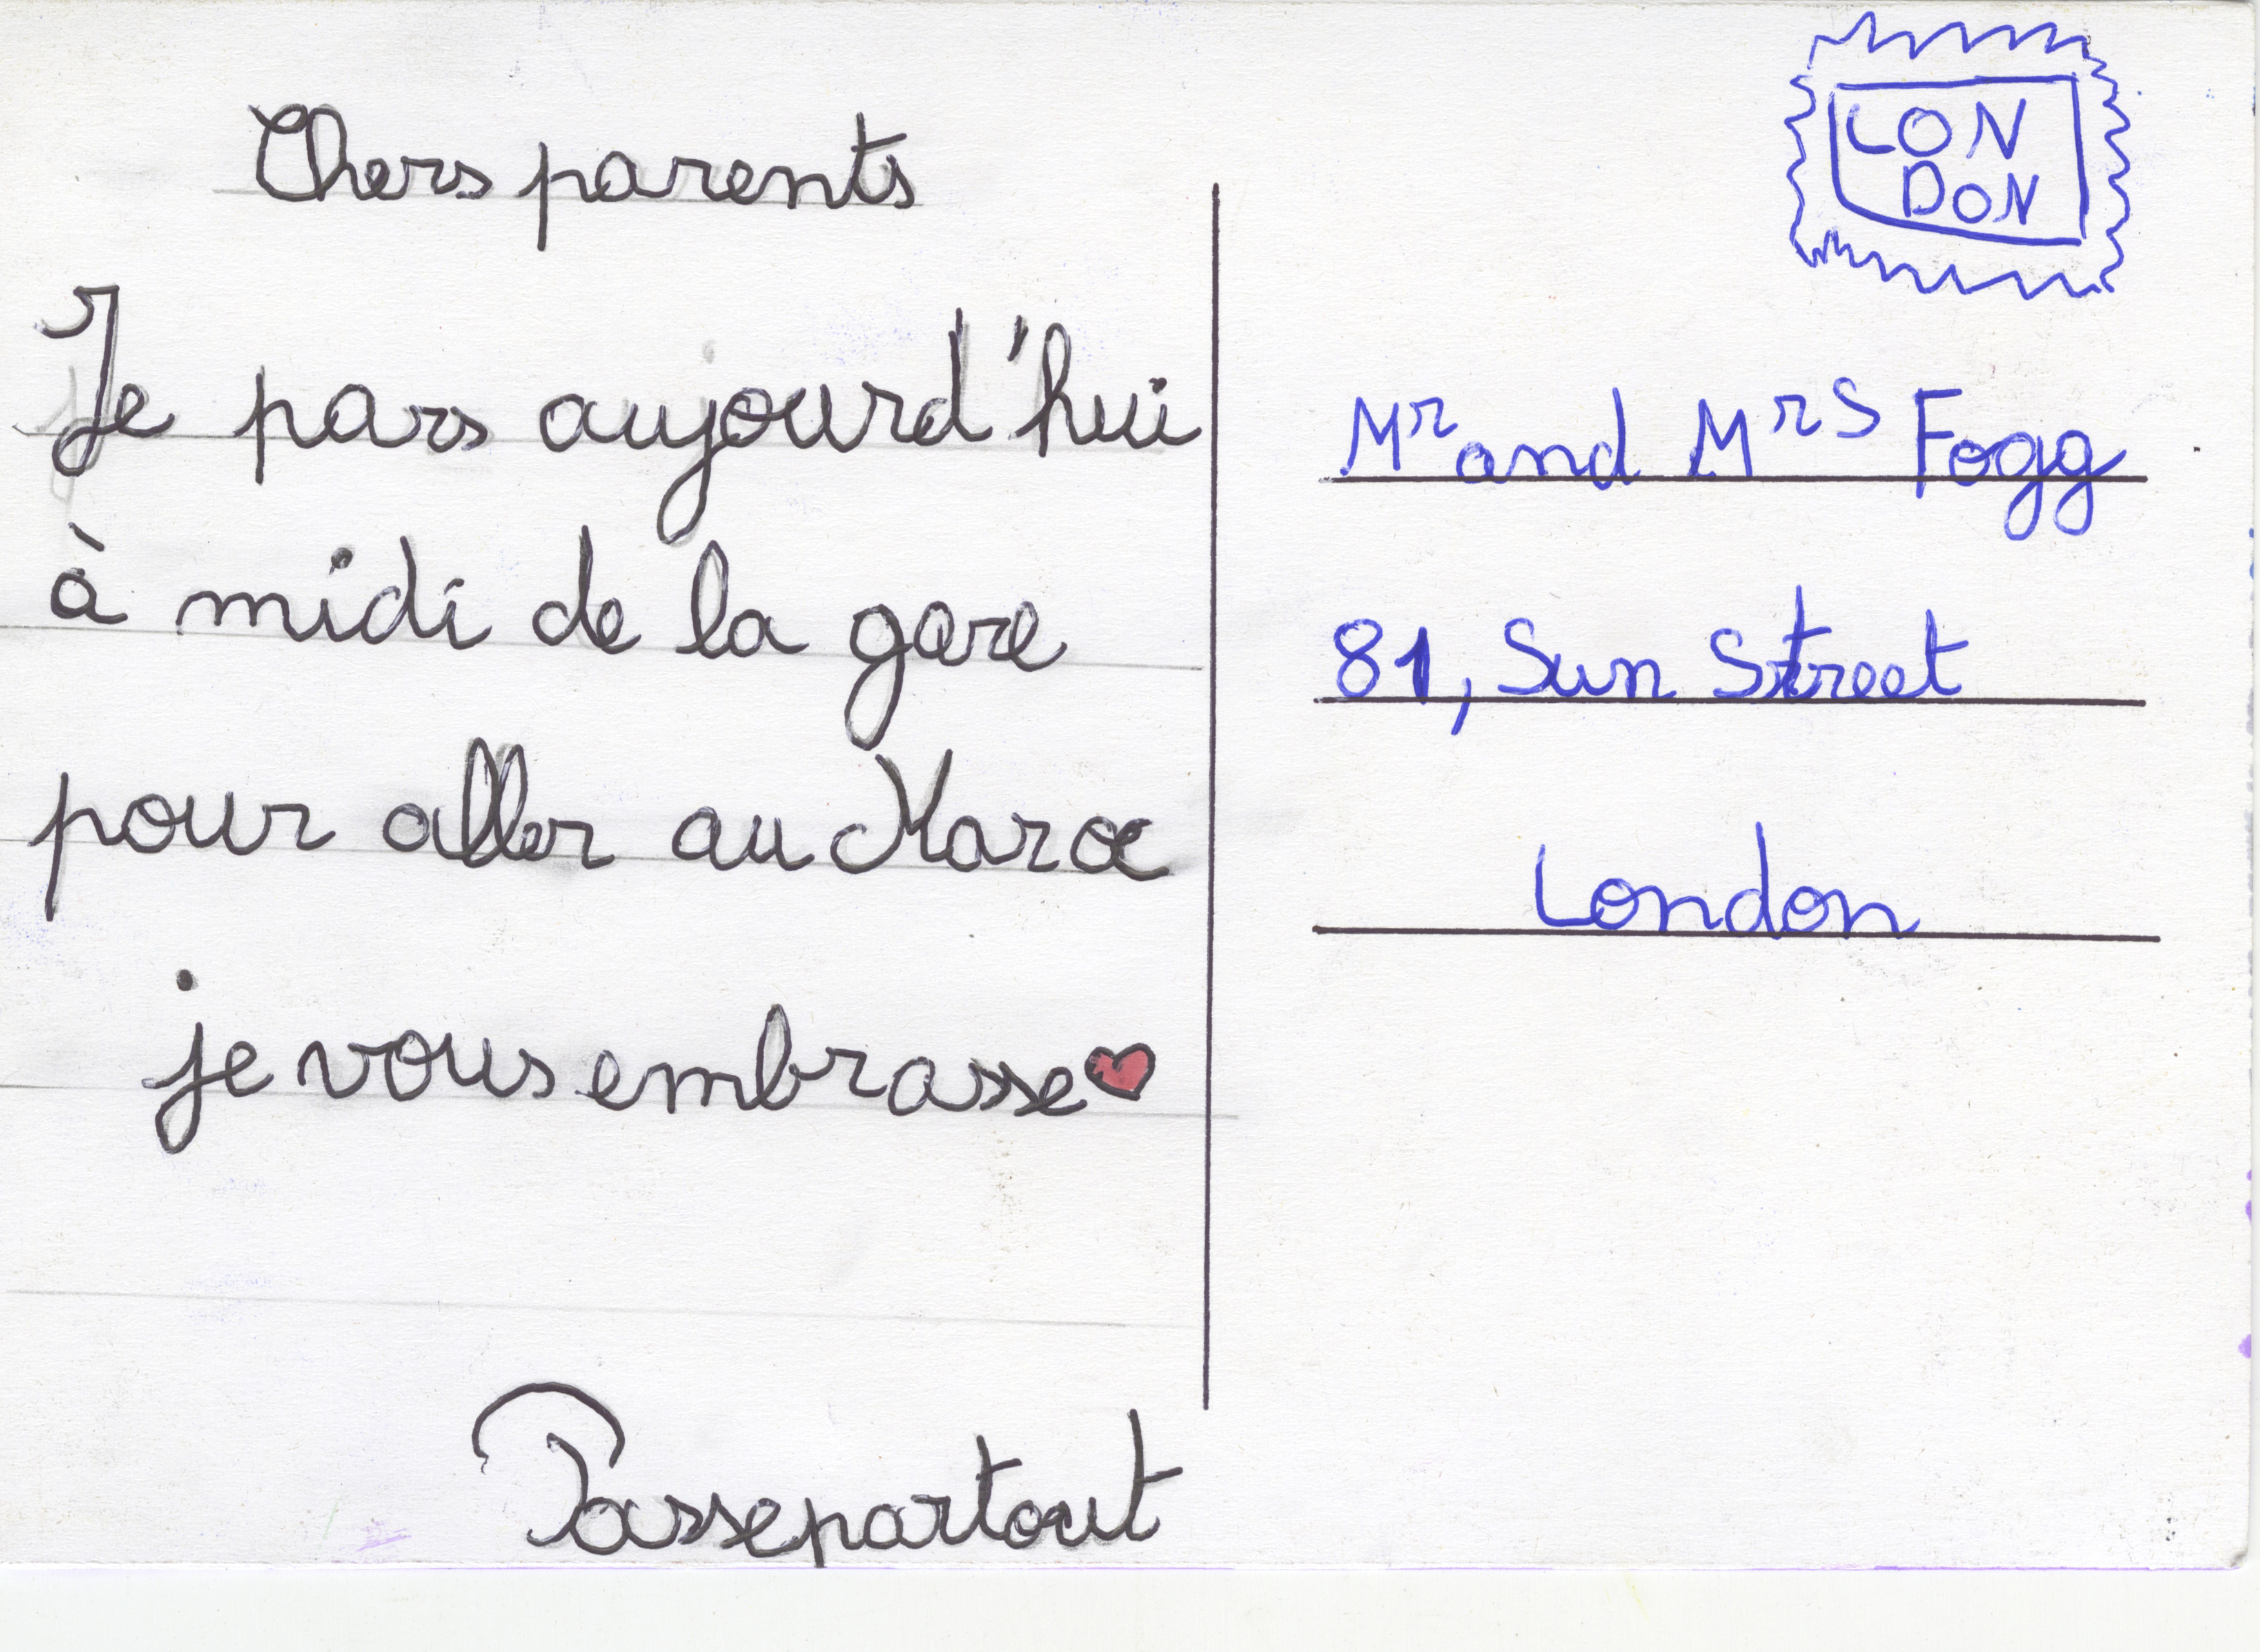 Chers parents
Je pars aujourd'hui
à midi de la gare
pour aller au Maroc
je vous embrasse
Passepartout
LON
DON
Mr and Mrs Fogg
81, Sun Street
London